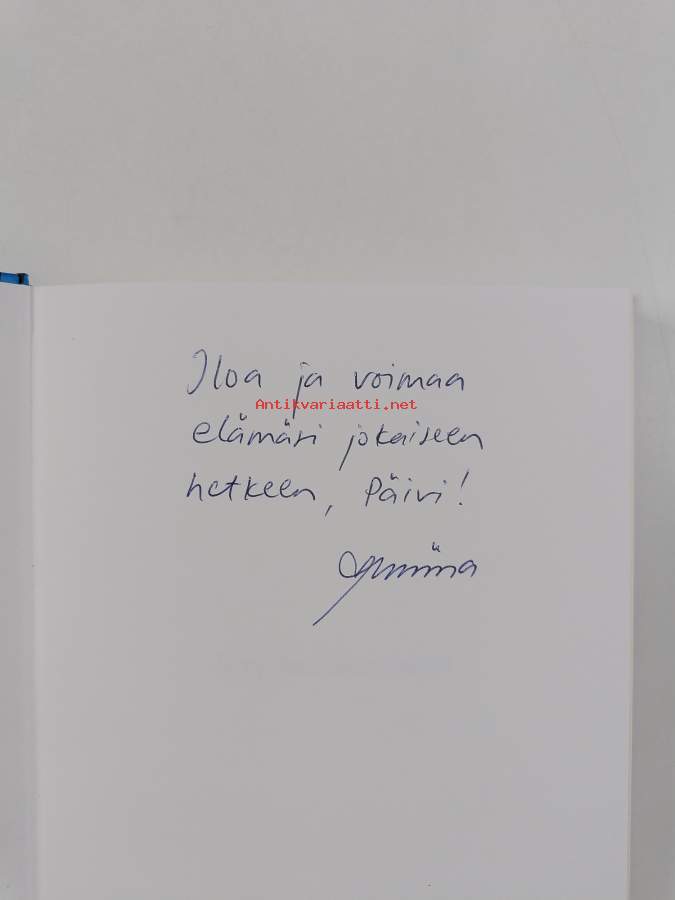 Iloa ja voimaa
Antikvariaatti.net
elämäsi jokaiseen
hetkeen, Päivi!